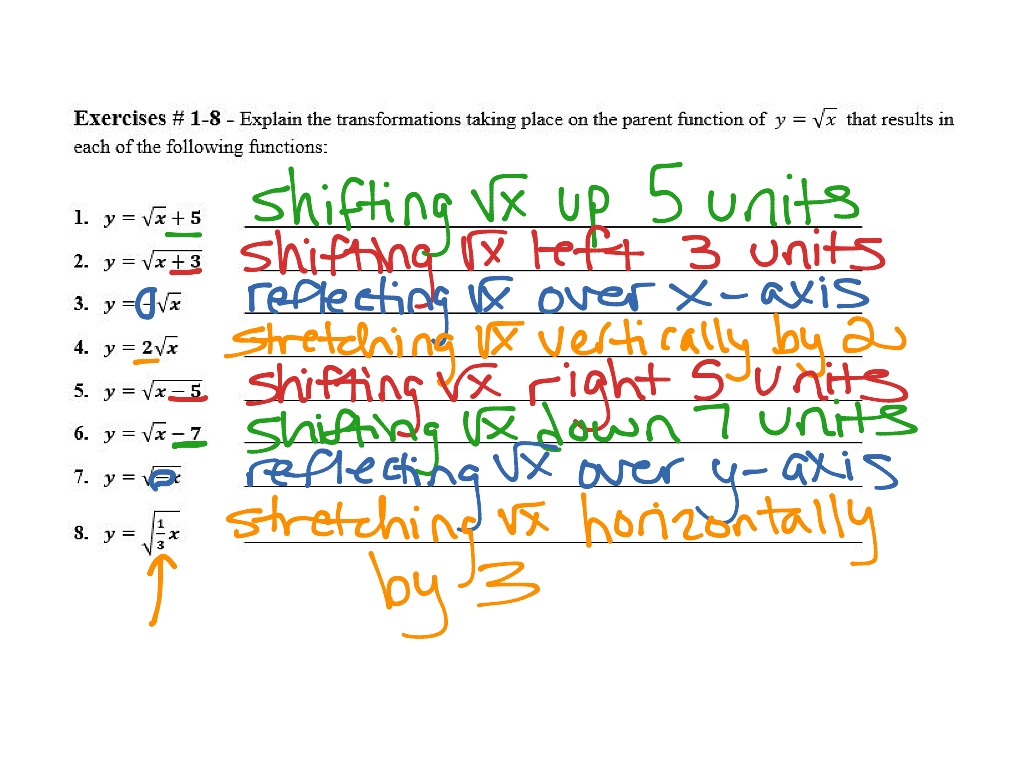 Exercises # 1-8 – Explain the transformations taking place on the parent function of y = √x that results in
each of the following functions:
1. y = √x + 5 shifting √x up 5 units
2. y = √(x + 3) shifting √x left 3 units
3. y = −√x reflecting √x over x-axis
4. y = 2√x stretching √x vertically by 2
5. y = √(x − 5) shifting √x right 5 units
6. y = √x − 7 shifting √x down 7 units
7. y = √(−x) reflecting √x over y-axis
8. y = √(1/3 x) stretching √x horizontally
by 3